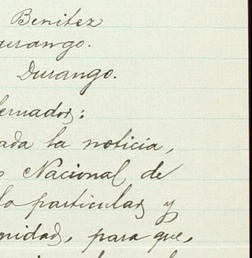 Benitez
urango.
Durango.
ernador:
ada la noticia,
Nacional de
lo particular y
nidad, para que,